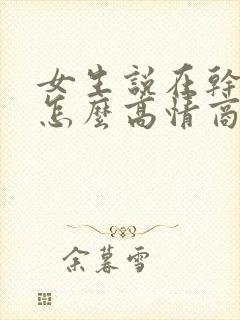 女生說在幹
怎麼高情商
余暮雪